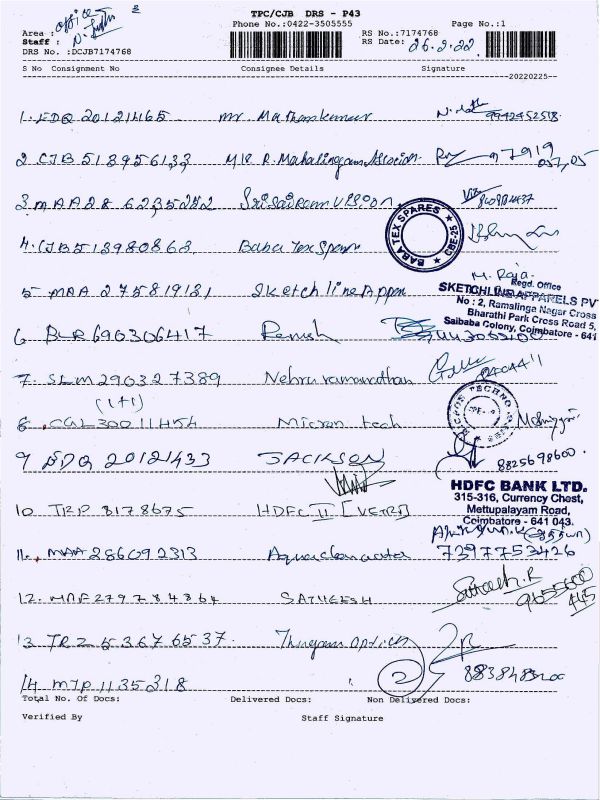 TPC/CJB DRS - P43
Area : office
Phone No.:0422-3505555
Page No.:1
Staff :
RS No.:7174768
DRS No. :DCJB7174768
RS Date: 26.2.22
S No Consignment No Consignee Details Signature
20220225
1. EDQ 20121465 Mr. Mathankumar
2 CJB 518956133 M/s R. Mahalingam
3 MAA 28 6235252 Sri Sairam Vision
BABA TEX SPARES CBE-25
4. CJB 513980863 Baba Tex Spares
M. Raja
5 MAA 275819131 Sketch line Appa
Regd. Office
SKETCHLINE APPARELS PV
No : 2, Ramalinga Nagar Cross
Bharathi Park Cross Road 5,
Saibaba Colony, Coimbatore - 641
6 BLR 690306417 Ramesh
7. SLM 290327389 Nehru ramanathan
(1+1)
8 . CGL 30011454 Micron tech
9 EDQ 20121433 JACKSON
8825698600
HDFC BANK LTD.
315-316, Currency Chest,
Mettupalayam Road,
Coimbatore - 641 043.
10. TRP 8178675 HDFC II [VETRI]
11. MAA 286092313 Aquaclean water 7397753426
12. MAF 279784864 SATHEESH Satheesh.R
9655600
445
13 TRZ 536765 37. Thingam Optics
14 MTP 1135318
2
Total No. Of Docs: Delivered Docs: Non Delivered Docs:
Verified By Staff Signature